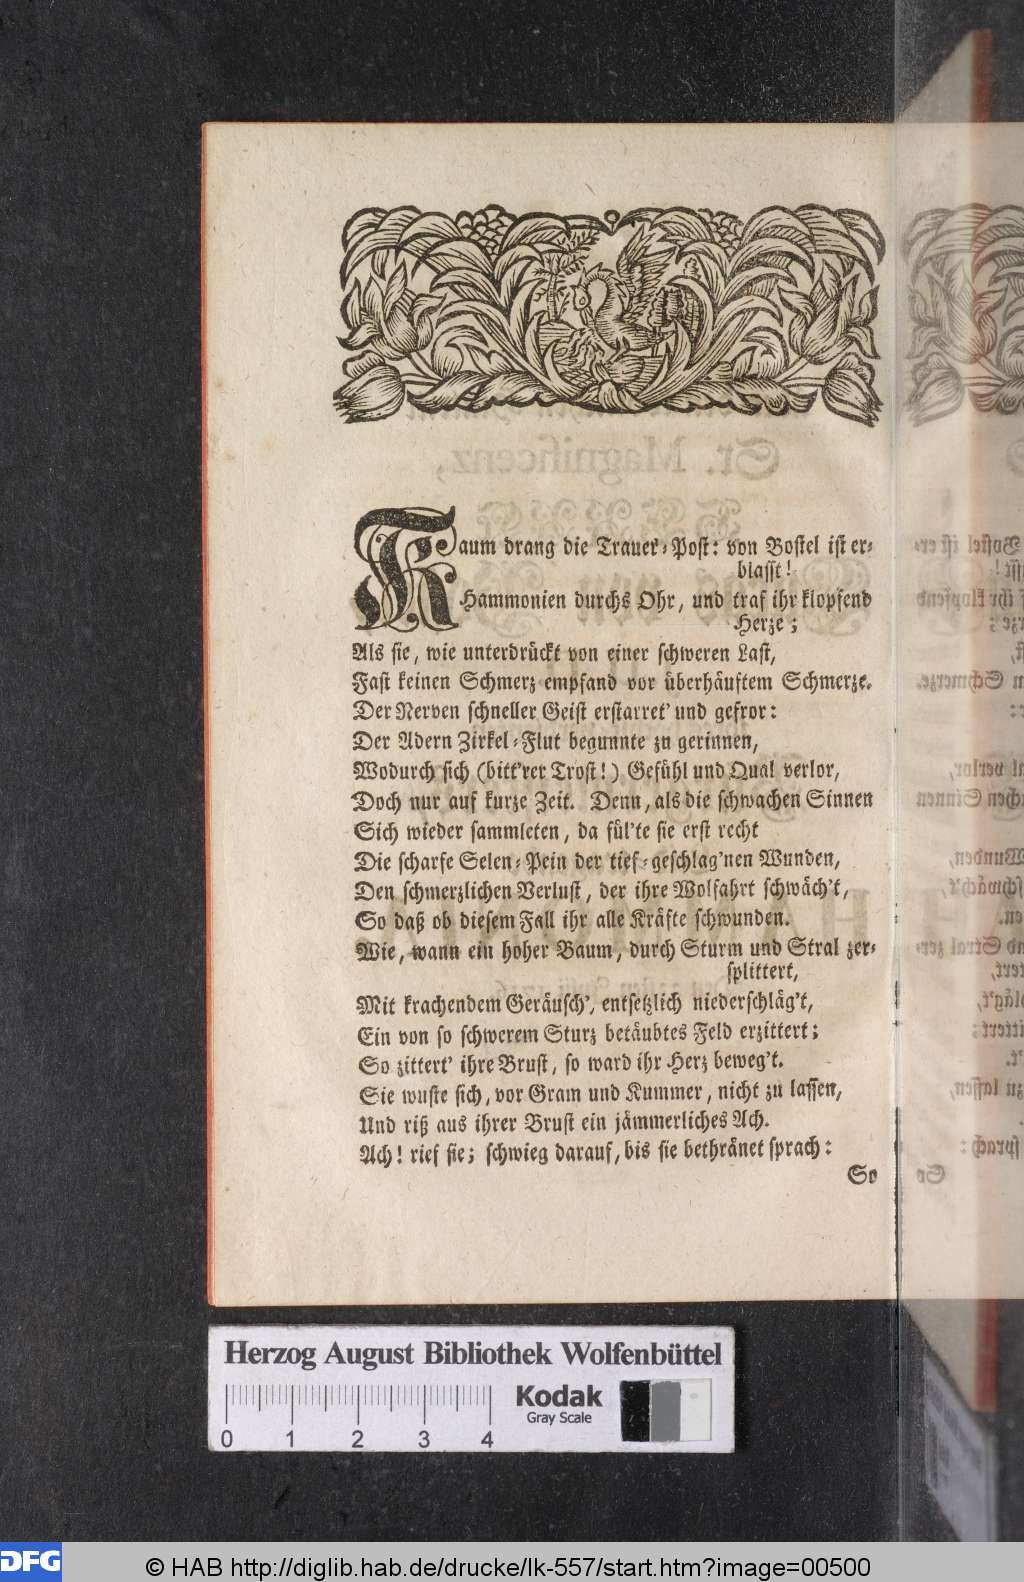 Kaum drang die Trauer-Post: von Bostel ist er-
blasst!
Hammonien durchs Ohr, und traf ihr klopfend
Herze;
Als sie, wie unterdrückt von einer schweren Last,
Fast keinen Schmerz empfand vor überhäuftem Schmerze.
Der Nerven schneller Geist erstarret' und gefror:
Der Adern Zirkel-Flut begunnte zu gerinnen,
Wodurch sich (bitt'rer Trost!) Gefühl und Qual verlor,
Doch nur auf kurze Zeit. Denn, als die schwachen Sinnen
Sich wieder sammleten, da fül'te sie erst recht
Die scharfe Selen-Pein der tief-geschlag'nen Wunden,
Den schmerzlichen Verlust, der ihre Wolfahrt schwäch't,
So daß ob diesem Fall ihr alle Kräfte schwunden.
Wie, wann ein hoher Baum, durch Sturm und Stral zer-
splittert,
Mit krachendem Geräusch', entsetzlich niederschläg't,
Ein von so schwerem Sturz betäubtes Feld erzittert;
So zittert' ihre Brust, so ward ihr Herz beweg't.
Sie wuste sich, vor Gram und Kummer, nicht zu lassen,
Und riß aus ihrer Brust ein jämmerliches Ach.
Ach! rief sie; schwieg darauf, bis sie bethränet sprach:
So
Herzog August Bibliothek Wolfenbüttel
Kodak
Gray Scale
0 1 2 3 4
DFG
© HAB http://diglib.hab.de/drucke/lk-557/start.htm?image=00500